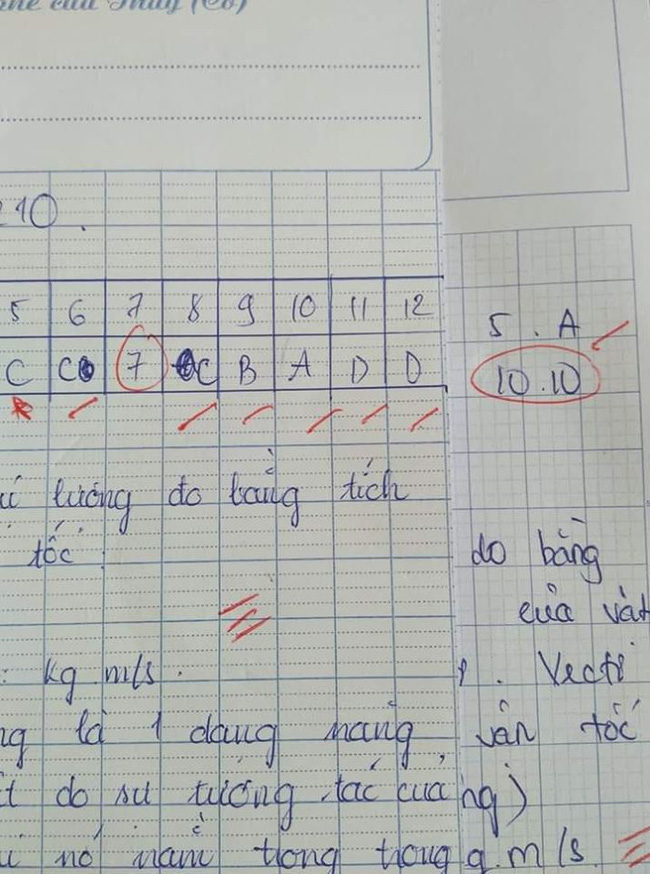 của Thầy (Cô)
210.
5 6 7 8 9 10 11 12
C C 7 C B A D D
5. A
10.10
lượng đo bằng tích
tốc
do bằng
của vật
: kg.m/s.
Vectơ
là 1 dạng năng,
vận tốc
do sự tương tác của
nó nằm trong
g.m/s